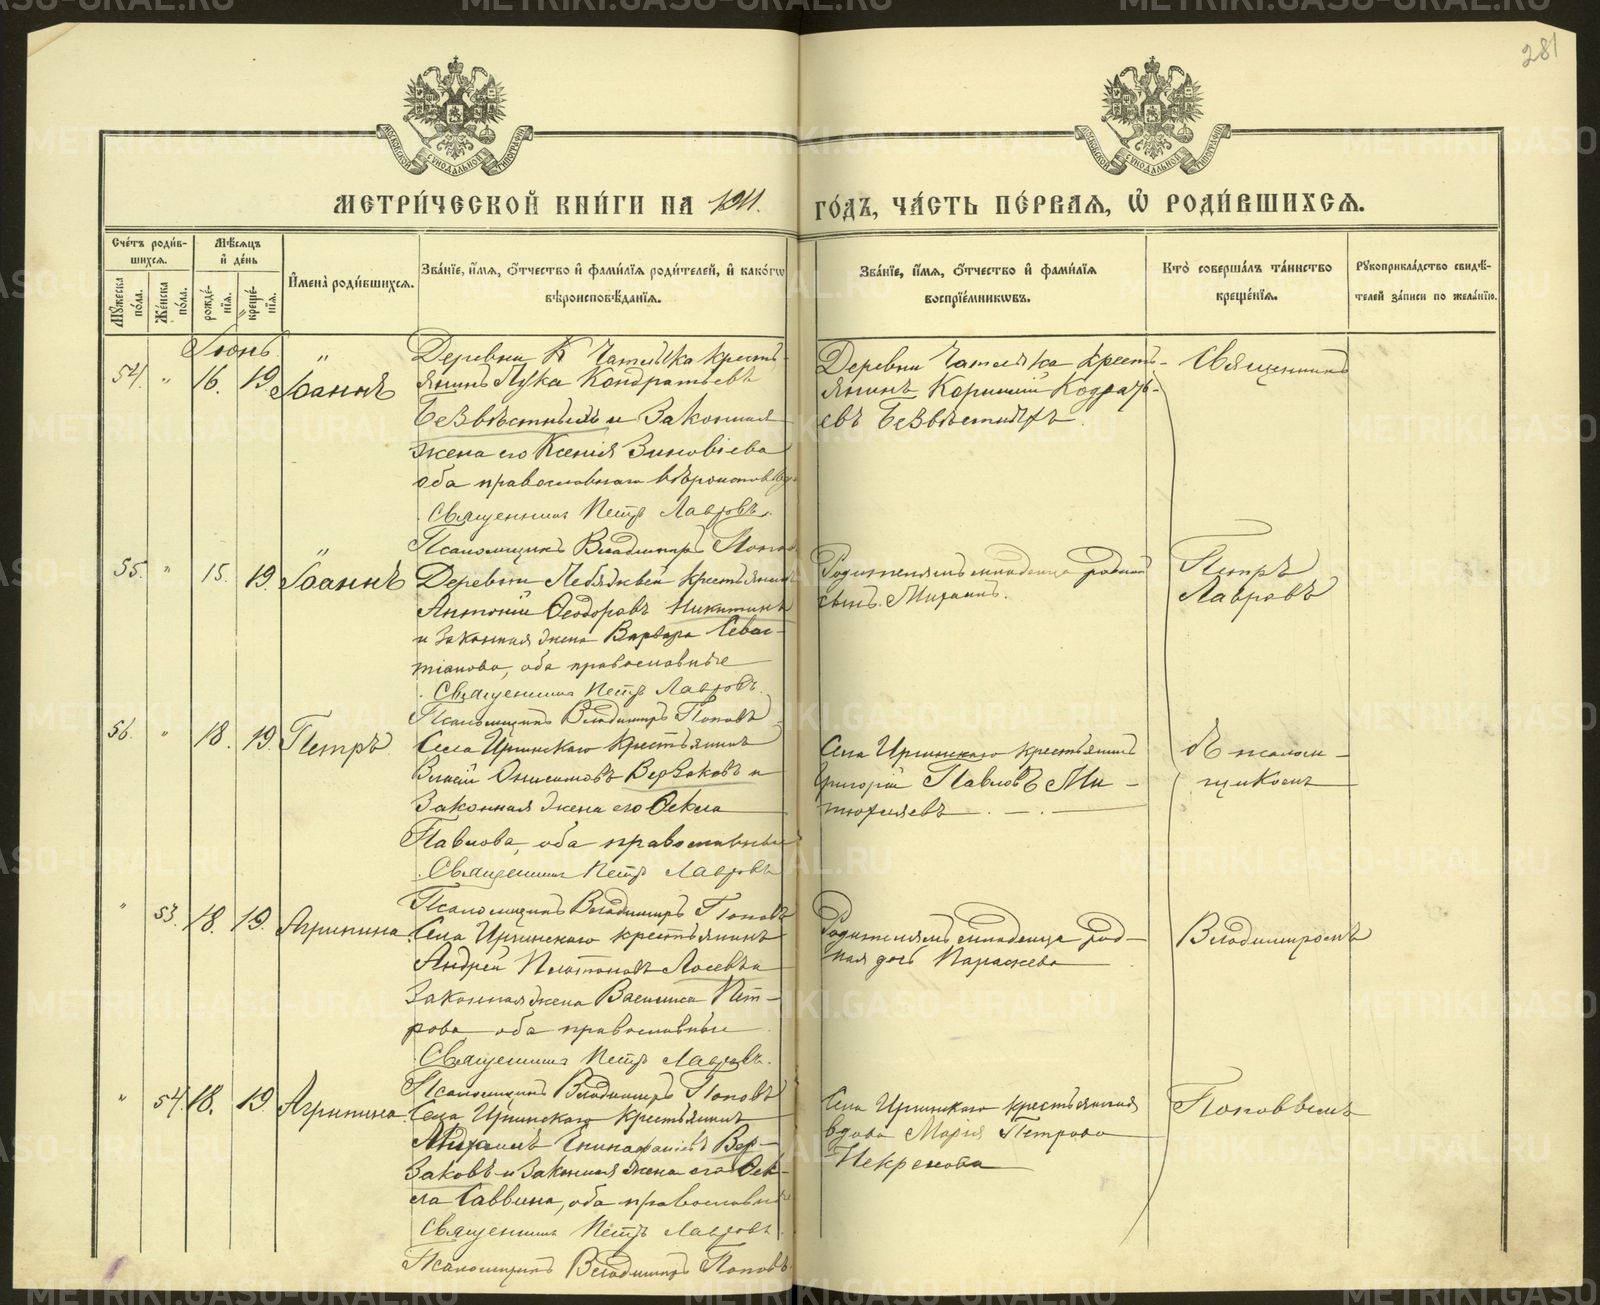 281
МОСКОВСКОЙ СѴНОДАЛЬНОЙ ТИПОГРАФІИ
МОСКОВСКОЙ СѴНОДАЛЬНОЙ ТИПОГРАФІИ
МЕТРИ́ЧЕСКОЙ КНИ́ГИ НА 1911. ГО́ДЪ, ЧА́СТЬ ПЕ́РВАЯ, Ѽ РОДИ́ВШИХСЯ.
Сче́тъ роди́в-
шихся.
Мꙋжеска по́ла.
Же́нска по́ла.
Мѣ́сяцъ
и҆ де́нь
рожде́-
нїя.
креще́-
нїя.
И҆мена̀ роди́вшихся.
Зва́нїе, и҆́мя, о҆́тчество и҆ фами́лїя роди́телей, и҆ како́гѡ
вѣроисповѣ́данїя.
Зва́нїе, и҆́мя, о҆́тчество и҆ фами́лїя
воспрїе́мникѡвъ.
Кто̀ соверша́лъ та́инство
креще́нїя.
Рꙋкоприкла́дство свидѣ́-
телей за́писи по жела́нїю.
Іюнь
54. " 16. 19 Іоаннъ
Деревни Чатлыка крестъ-
янинъ Лука Кондратьевъ
Безвѣстныхъ и законная
жена его Ксенія Зиновіева
оба православнаго вѣроисповѣд
Священникъ Петръ Лавровъ.
Псаломщикъ Владимиръ Попов
Деревни Чатлыка крестъ-
янинъ Корнилій Кодрать-
евъ Безвѣстныхъ
Священникъ
55. " 15. 19. Іоаннъ
Деревни крестьянинъ
Антоній Ѳеодоровъ Никитинъ
и законная жена Варвара Севас-
тіанова, оба православные
Священникъ Петръ Лавровъ.
Псаломщикъ Владимиръ Поповъ
Родителямъ младенца родной
сынъ Михаилъ.
Петръ
Лавровъ
56. " 18. 19. Петръ
Села Иргинскаго крестьянинъ
Онисимовъ Верзаковъ и
законная жена его Ѳекла
Павлова, оба православные
Священникъ Петръ Лавровъ
Псаломщикъ Владимиръ Поповъ
Села Иргинскаго крестьянинъ
Григорій Павловъ Ми-
тюхляевъ
съ псалом-
щикомъ
" 53. 18. 19. Агрипина
Села Иргинскаго крестьянинъ
Андрей Платоновъ Лосевъ и
законная жена Василиса Пет-
рова оба православные
Священникъ Петръ Лавровъ.
Псаломщикъ Владимиръ Поповъ
Родителямъ младенца род-
ная дочь Параскева
Владимиромъ
" 54. 18. 19 Агрипина
Села Иргинскаго крестьянинъ
Михаилъ Епифаніевъ Вер-
заковъ и законная жена его Ѳек-
ла Саввина, оба православные
Священникъ Петръ Лавровъ.
Псаломщикъ Владимиръ Поповъ
Села Иргинскаго крестьянская
вдова Марія Петрова
Некрасова
Поповымъ
METRIKI.GASO-URAL.RU